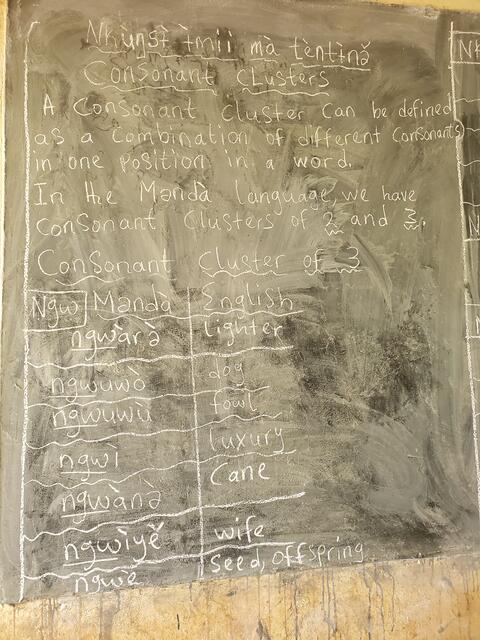 Nkuŋsì ìmii mà tèntìnə̌
Consonant Clusters
A Consonant Cluster can be defined
as a combination of different consonants
in one position in a word.
In the Mənda language, we have
consonant clusters of 2 and 3.
Consonant Cluster of 3
Ngw Mənda English
ngwàrə̀ lighter
ngwuwò dog
ngwuwù fowl
ngwi luxury
ngwànə̀ Cane
ngwìyě wife
ngwè Seed, offspring